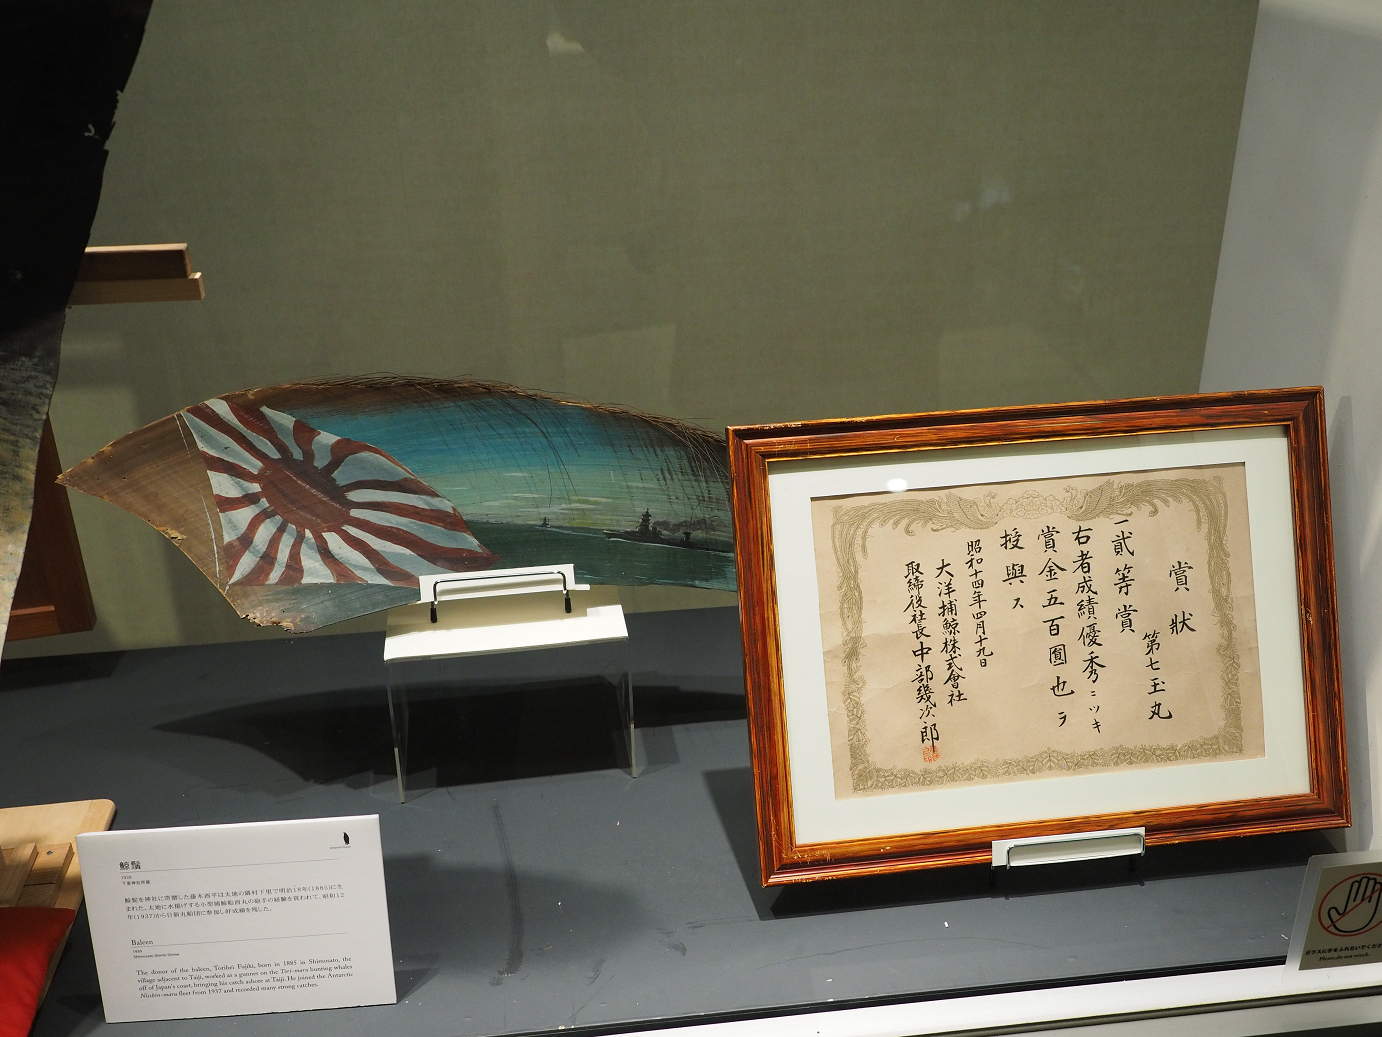 鯨鬚
1939
下里神社所蔵
鯨髭を神社に寄贈した藤木酉平は太地の隣村下里で明治18年(1885)に生
まれた。太地に水揚げする小型捕鯨船酉丸の砲手の経験を買われて、昭和12
年(1937)から日新丸船団に参加し好成績を残した。
Baleen
1939
Shimosato Shinto Shrine
The donor of the baleen, Torihei Fujiki, born in 1885 in Shimosato, the
village adjacent to Taiji, worked as a gunner on the Tori-maru hunting whales
off of Japan's coast, bringing his catch ashore at Taiji. He joined the Antarctic
Nisshin-maru fleet from 1937 and recorded many strong catches.
賞狀
第七玉丸
一貳等賞
右者成績優秀ニツキ
賞金五百圓也ヲ
授與ス
昭和十四年四月十九日
大洋捕鯨株式會社
取締役社長中部幾次郎
ガラスに手をふれないでくださ
Please, do not touch.